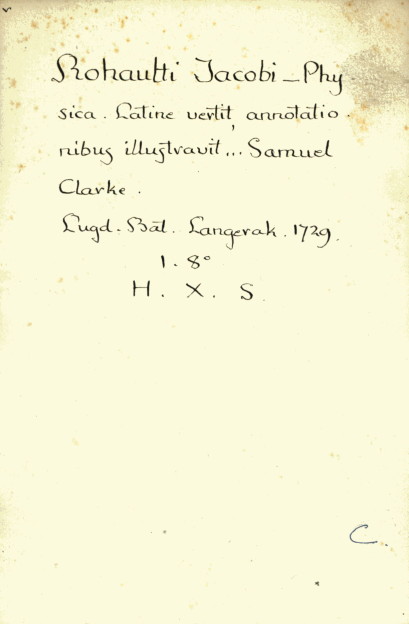 Rohaulti Jacobi - Phy
sica. Latine vertit, annotatio.
nibus illustravit... Samuel
Clarke.
Lugd. Bat. Langerak. 1729.
1. 8°
H. X. S.
C.